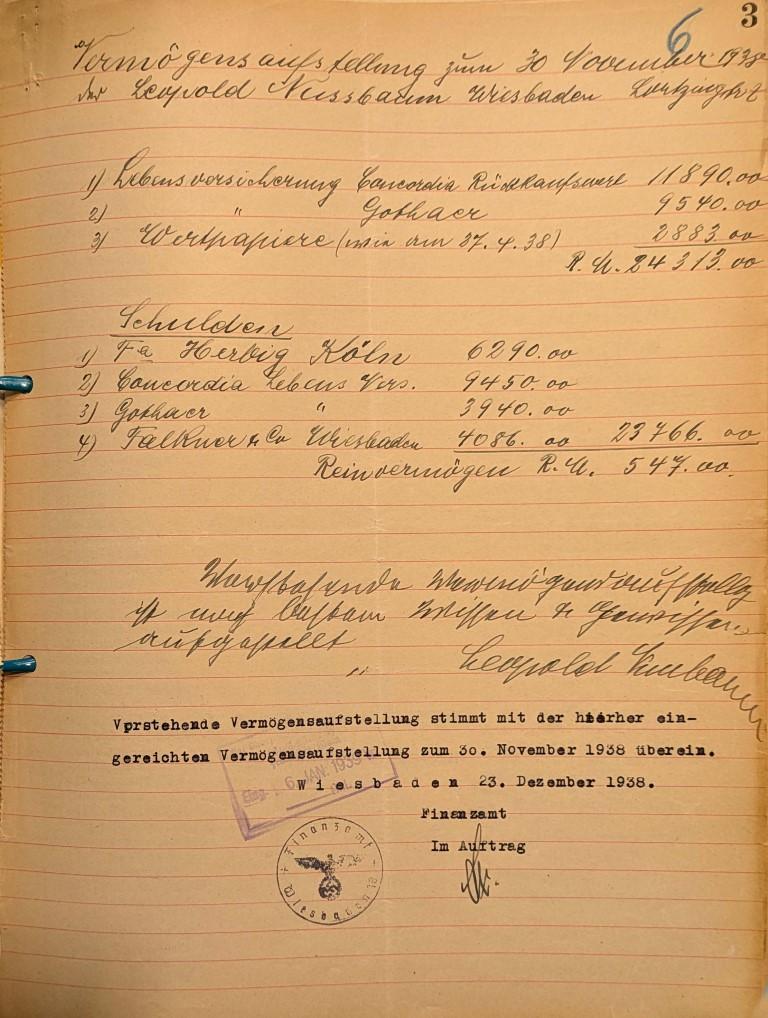 3
6
Vermögensaufstellung zum 30 November 1938
des Leopold Nussbaum Wiesbaden
1) Lebensversicherung Concordia Rückkaufswert 11890.00
2) " Gothaer 9540.00
3) Wertpapiere (wie am 27.4.38) 2883.00
R.M. 24313.00
Schulden
1) Fa Herbig Köln 6290.00
2) Concordia Lebens Vers. 9450.00
3) Gothaer " 3940.00
4) Falkner & Co Wiesbaden 4086.00 23766.00
Reinvermögen R.M. 547.00.
Vorstehende Vermögensaufstellg
ist nach bestem Wissen & Gewissen
aufgestellt
Leopold Nussbaum
Vprstehende Vermögensaufstellung stimmt mit der hierher ein-
gereichten Vermögensaufstellung zum 30. November 1938 überein.
Wiesbaden 23. Dezember 1938.
Finanzamt
Im Auftrag
Eing. 6. JAN. 1939
Finanzamt Wiesbaden